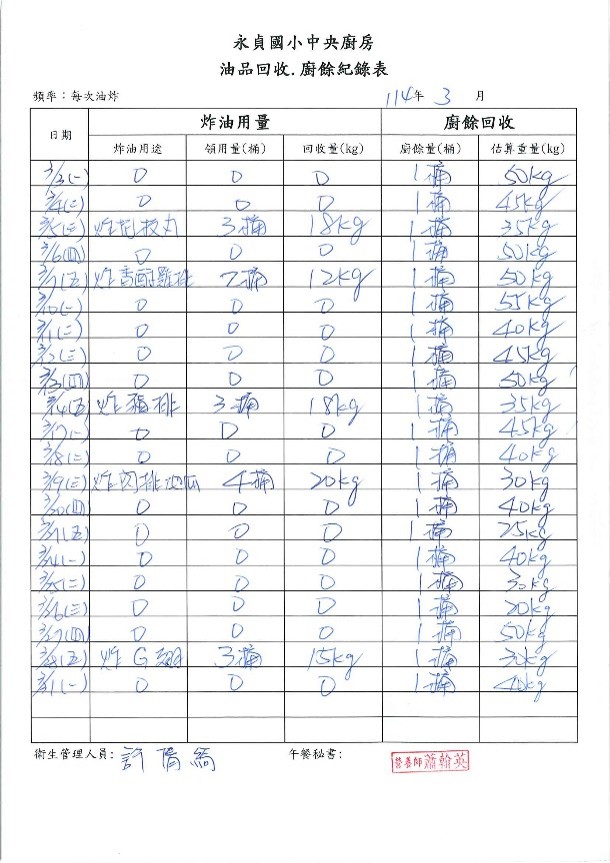 永貞國小中央廚房
油品回收.廚餘紀錄表
頻率：每次油炸 114年 3 月
日期 炸油用量 廚餘回收
炸油用途 領用量(桶) 回收量(kg) 廚餘量(桶) 估算重量(kg)
3/3(一) 0 0 0 1桶 50kg
3/4(二) 0 0 0 1桶 45kg
3/5(三) 炸 丸 3桶 18kg 1桶 35kg
3/6(四) 0 0 0 1桶 50kg
3/7(五) 炸香酥雞排 2桶 12kg 1桶 50kg
3/10(一) 0 0 0 1桶 55kg
3/11(二) 0 0 0 1桶 40kg
3/12(三) 0 0 0 1桶 45kg
3/13(四) 0 0 0 1桶 50kg
3/14(五) 炸豬排 3桶 18kg 1桶 35kg
3/17(一) 0 0 0 1桶 45kg
3/18(二) 0 0 0 1桶 40kg
3/19(三) 炸肉排地瓜 4桶 20kg 1桶 30kg
3/20(四) 0 0 0 1桶 40kg
3/21(五) 0 0 0 1桶 25kg
3/24(一) 0 0 0 1桶 40kg
3/25(二) 0 0 0 1桶 30kg
3/26(三) 0 0 0 1桶 20kg
3/27(四) 0 0 0 1桶 50kg
3/28(五) 炸G翅 3桶 15kg 1桶 30kg
3/31(一) 0 0 0 1桶 40kg
衛生管理人員: 許 午餐秘書: 營養師蕭翰英